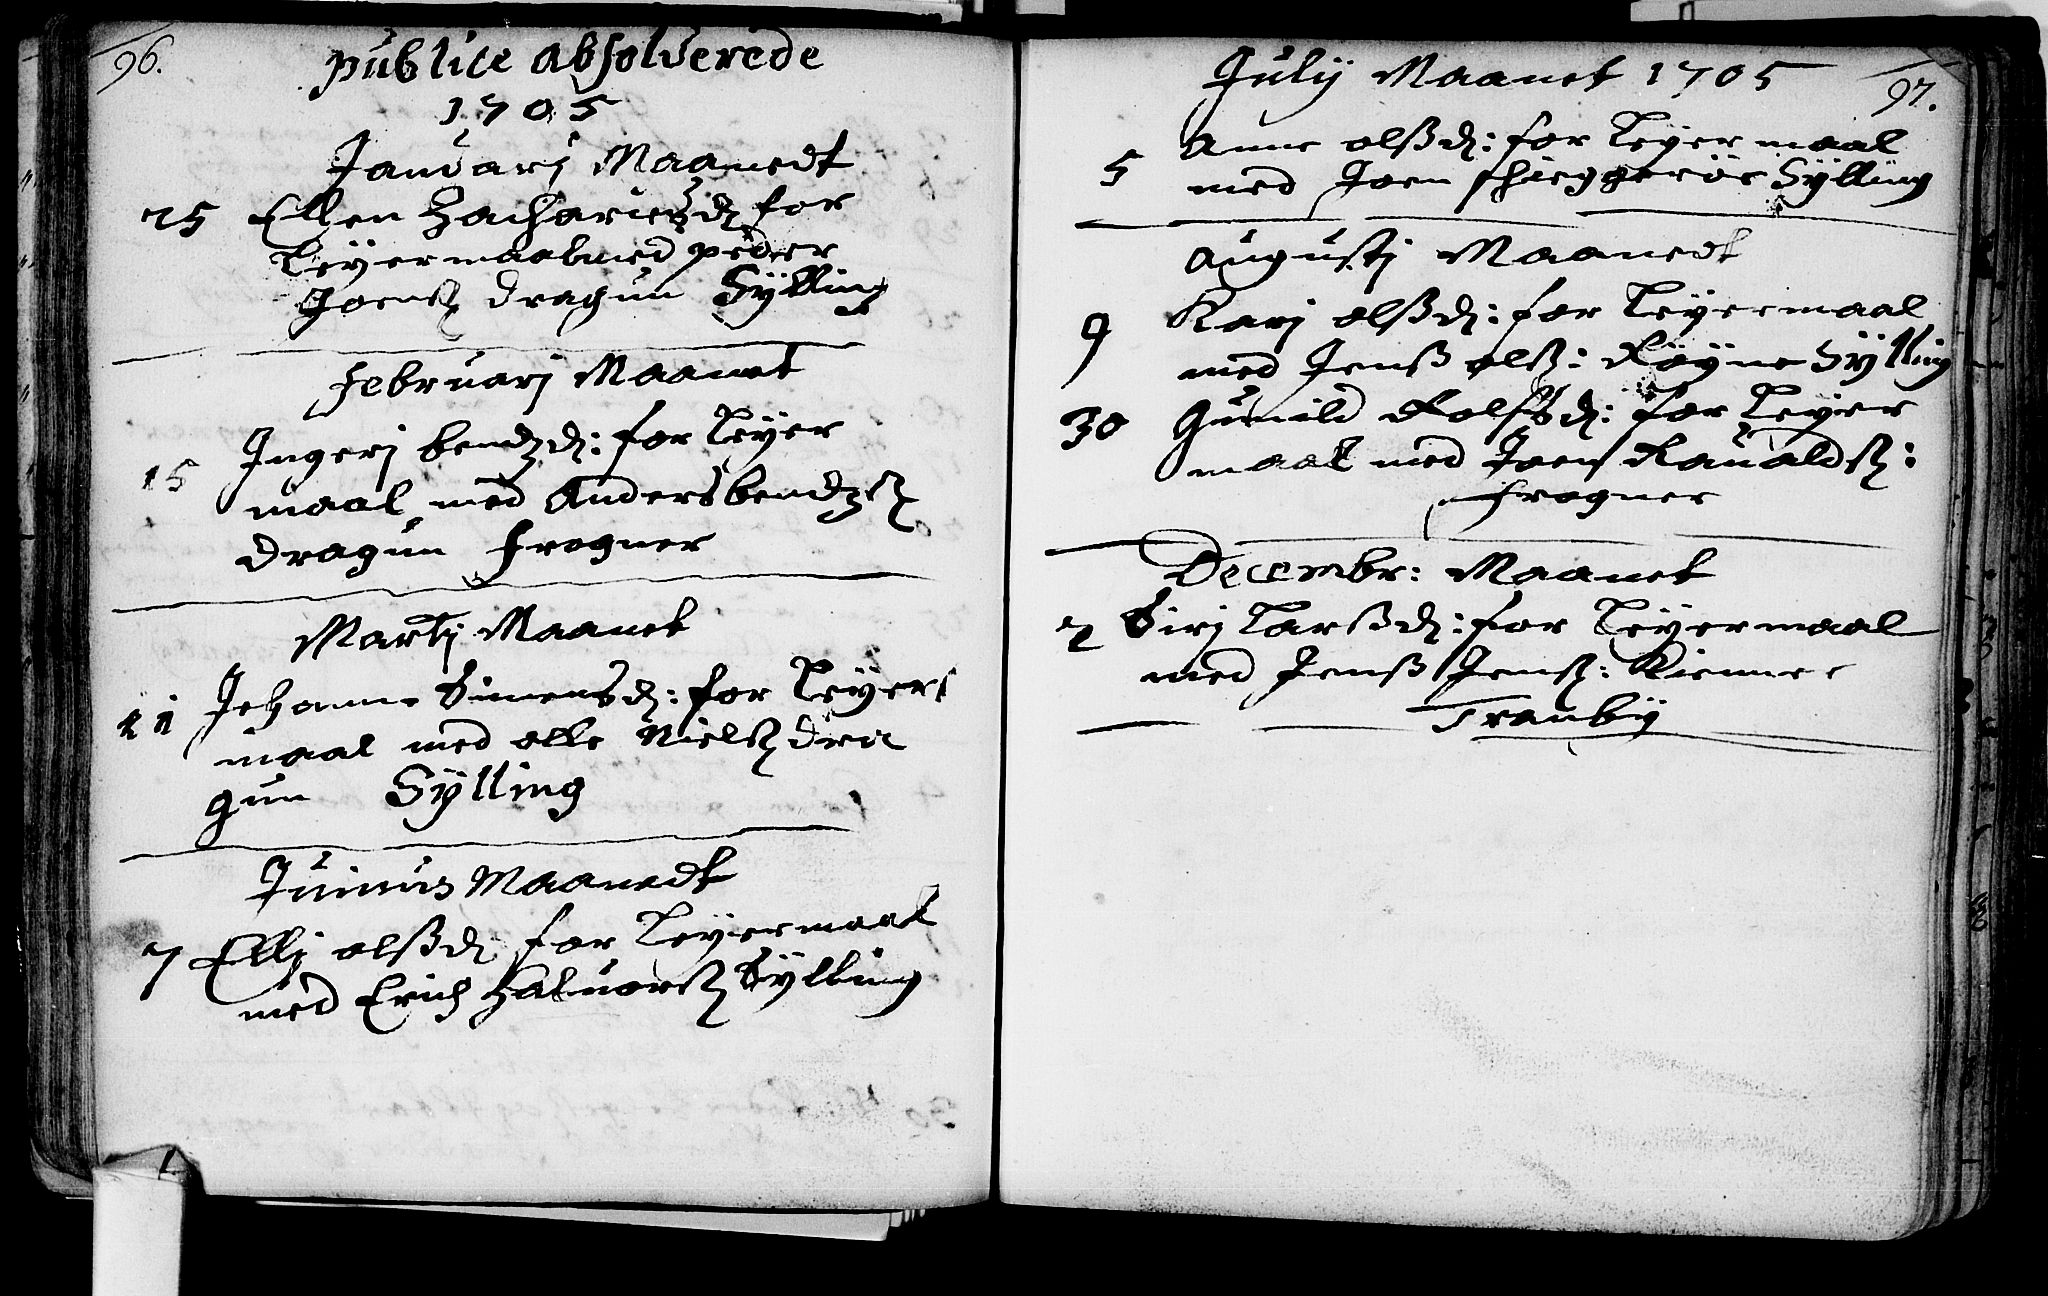 96.
publice absolverede
1705
Januarj Maanedt
25 Ellen Zachariesdꝫ for
Leyermaal med peder
Joensꝫ dragun Sylling
Februarj Maanet
Ingerj bendzdꝫ: for Leyer
15 maal med Anders bendzsꝫ
dragun Frogner
Martj Maanet
Johanne Simensdꝫ: for Leyers
11 maal med olle Nielsꝫ dra
gun Sylling
Junius Maanedt
7 Ellj olßdꝫ for Leyermaal
med Erich Haluorsꝫ Sylling
97.
July Maanet 1705
Anne olßdꝫ: for Leyermaal
5 med Joen Sylling
Augustj Maanedt
9 Karj olßdꝫ: for Leyermaal
med Jenß olß: Røyne Sylling
30 Gunild Rolfsdꝫ: for Leyer
maal med Joen Raualdsꝫ:
Frogner
Decembr: Maanet
2 Sirj Larßdꝫ: for Leyermaal
med Jenß Jensꝫ: Kienner
Tranby